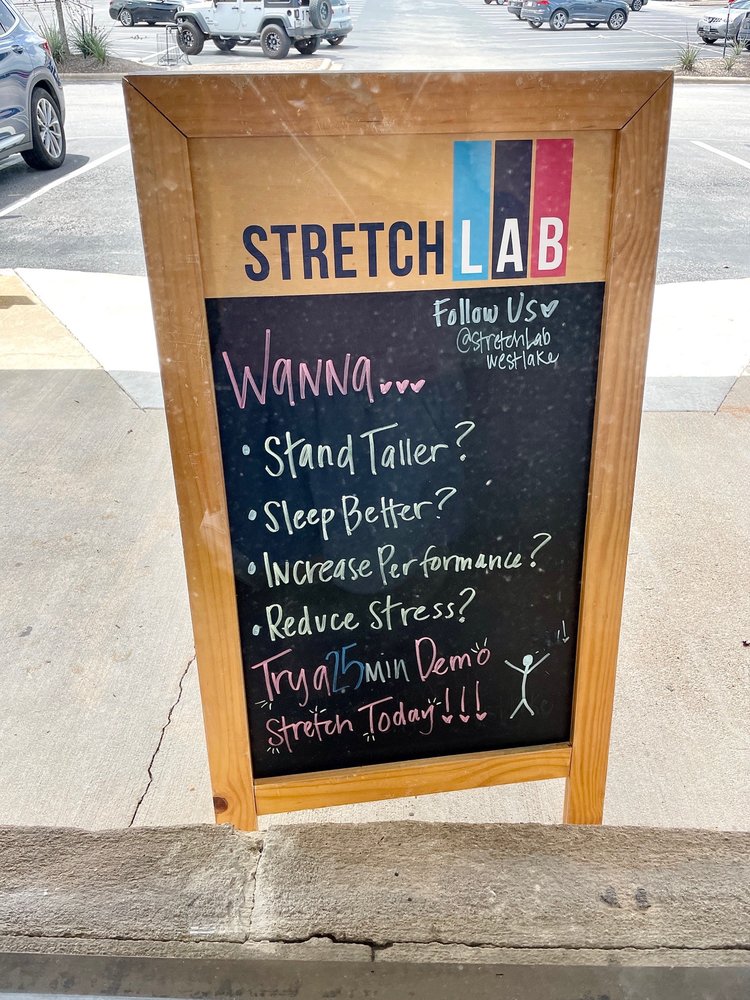 STRETCHLAB
Follow Us
@StretchLab
westlake
Wanna...
• Stand Taller?
• Sleep Better?
• Increase Performance?
• Reduce Stress?
Try a 25 min Demo
Stretch Today!!!